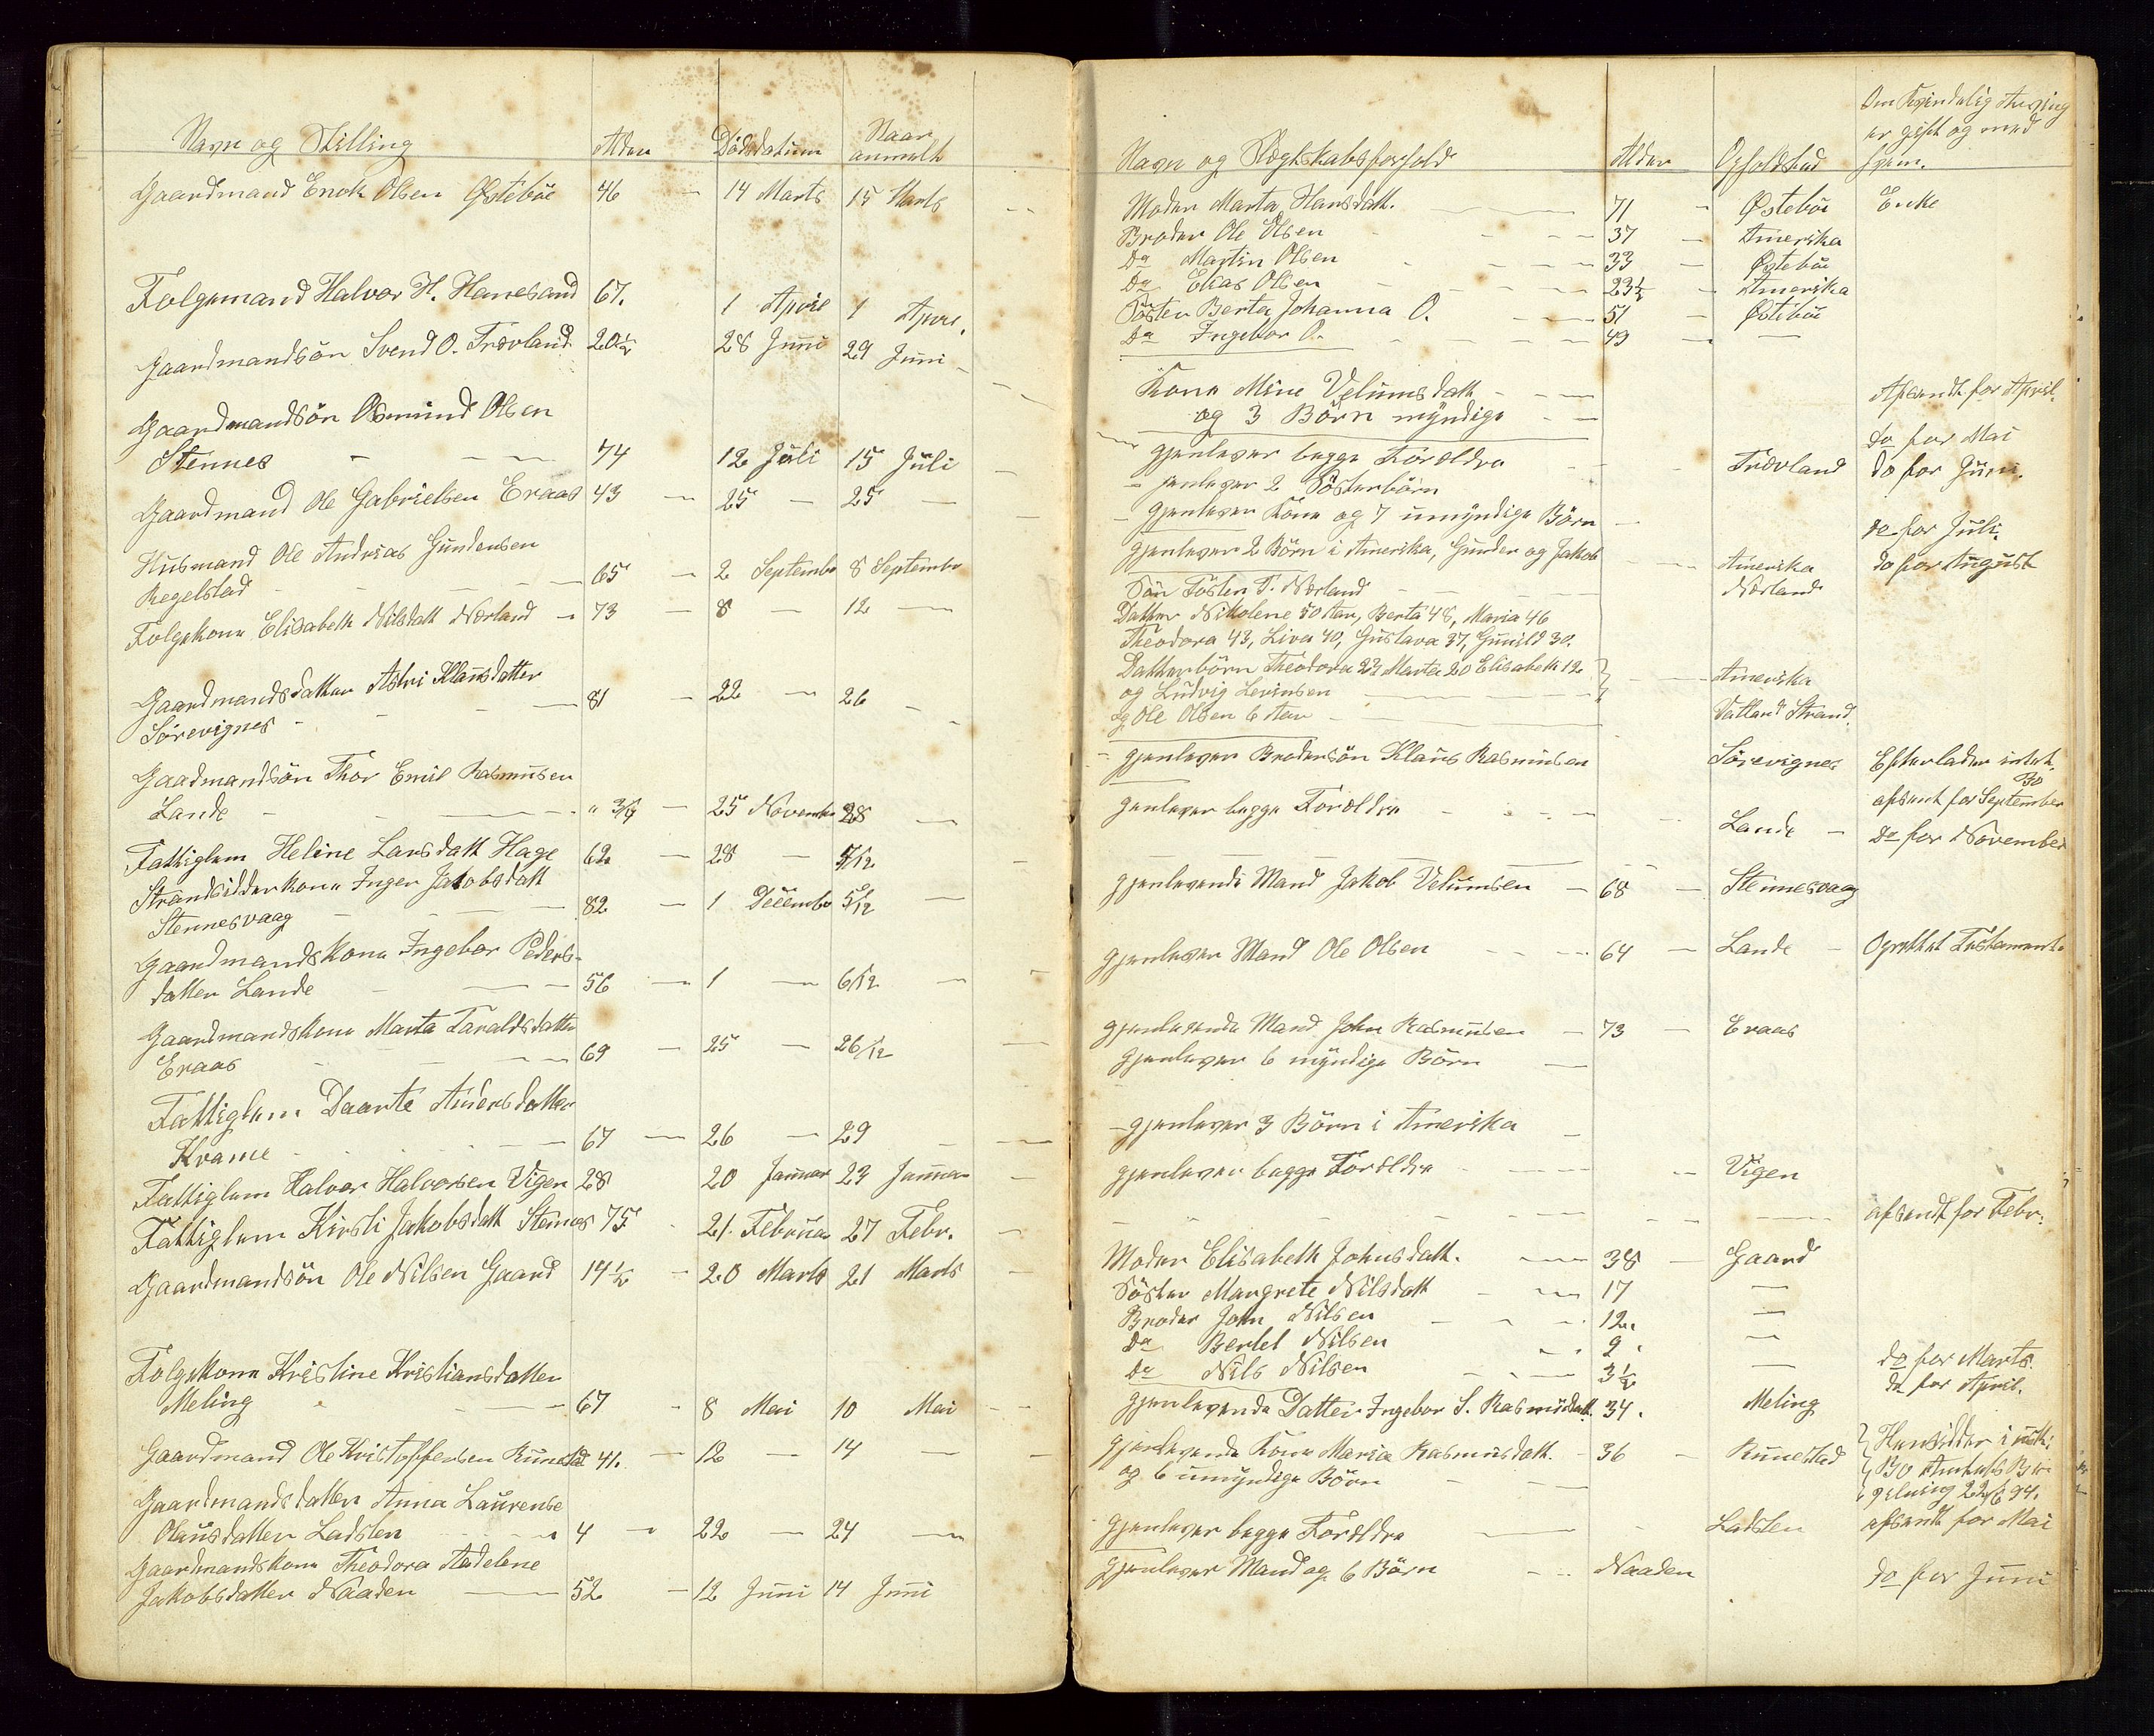 Navn og Stilling Alder Dödsdatum Naar
anmeldt
Gaardmand Enok Olsen Östeböe 46 — 14 Marts 15 Marts —
Folgemand Halvor H. Hanesand 67. 1 April 1 April.
Gaardmandsön Svend O. Trovland 20½ 28 Juni 29 Juni —
Gaardmandsön Osmund Olsen
Stennes — — 74 12 Juli 15 Juli —
Gaardmand Ole Gabrielsen Eraas 43 — 25 — 25 —
Husmand Ole Andrias Gundersen
Regelstad — — 65 — 2 September 8 September
Folgekone Elisabeth Nilsdatt Nærland — 73 — 8 — 12 —
Gaardmandsdatter Astri Klausdatter
Sörevignes — — 81 — 22 — 26 —
Gaadmandsön Thor Emil Rasmusen
Lande — — " 3/4 — 25 November 28 —
Fattiglem Heline Larsdatt Hage 62 — 28 — 4/12 —
Strandsidderkone Inger Jakobsdatt
Stennesvaag — — 82 — 1 December 5/12 —
Gaardmandskone Ingebor Peders-
datter Lande — — 56 — 1 — 6/12 —
Gaardmandskone Marta Taraldsdatter
Eraas — — 69 — 25 — 26/12 —
Fattiglem Daarte Andersdatter
Kvame — — 67 — 26 — 29 —
Fattiglem Halvor Halvorsen Vigen 28 20 Januar 23 Januar —
Fattiglem Kirsti Jakobsdatt Stennes 75 21. Februar 27 Febr. —
Gaardmandsön Ole Nilsen Gaard 14½ — 20 Marts 21 Marts —
Folgekone Kristine Kristiansdatter
Meling — 67 — 8 Mai 10 Mai —
Gaardmand Ole Kristoffersen Runestad 41. — 12 — 14 —
Gaardmandsdatter Anna Laurense
Olausdatter Ladsten — 4 — 22 — 24 —
Gaardmandskone Theodora Adelene
Jakobsdatter Naaden — 52 — 12 Juni 14 Juni
Om Kvindelig Arving
er gift og med
Navn og Slægtskabsforhold Alder Opholdsted hvem.
Moder Marta Hansdatt. — 71 — Östeböe Enke
Broder Ole Olsen — 37 — Amerika
Do Martin Olsen — 33 — Östeböe
Do Elias Olsen — 23½ — Amerika
Söster Berta Johanna O. — 51 — Östeböe
Do Ingebor O. — 49 — —
Kone Mine Velumsdatt — — Afsendt for April.
og 3 Börn myndige — —
do for Mai
gjenlever begge Forældre — Trovland do for Juni.
— jenlever 2 Sösterbörn
— Gjenlever Kone og 7 umyndige Börn — do for Juli.
gjenlever 2 Börn i Amerika, Gunder og Jakob — Amerika do for August
Sön Tosten T. Nærland — Nærland
Datter Nikolene 50 Aar, Berta 48, Maria 46
Theodora 43, Liva 40, Gustava 37, Gunild 30.
Datterbörn Theodora 23 Marta 20 Elisabeth 12 — Amerika
og Ludvig Levinsen —
og Ole Olsen 6 Aar — Vatland Strand.
— gjenlever Brodersön Klaus Rasmusen Sörevignes Efterlader intet
Bo
gjenlever begge Forældre — Lande — afsent for September
Do for November
gjenlevende Mand Jakob Velumsen — 68 — Stennesvaag
gjenlever Mand Ole Olsen — 64 — Lande — Oprettet Testamente
gjenlevende Mand John Rasmusen — 73 — Eraas
gjenlever 6 myndige Börn —
— gjenlever 3 Börn i Amerika —
gjenlever begge Forældre — Vigen
— — — — afsendt for Febr.
Moder Elisabeth Johnsdatt. — 38 — Gaard
Söster Margrete Nilsdatt — 17 —
Broder John Nilsen — 12. —
Do Bertel Nilsen — 9. —
Do Nils Nilsen — 3½ — do for Marts.
do for April.
gjenlevende Datter Ingebor S. Rasmusdatt. 34. Meling
gjenlevende Kone Maria Rasmusdatt. — 36 — Runestad Hensidder i uskt.
og 6 umyndige Börn — Bo Amtets Be-
22/6 94.
gjenlever begge Forældre — Ladsten afsendt for Mai
gjenlever Mand og 6 Börn — Naaden do for Juni